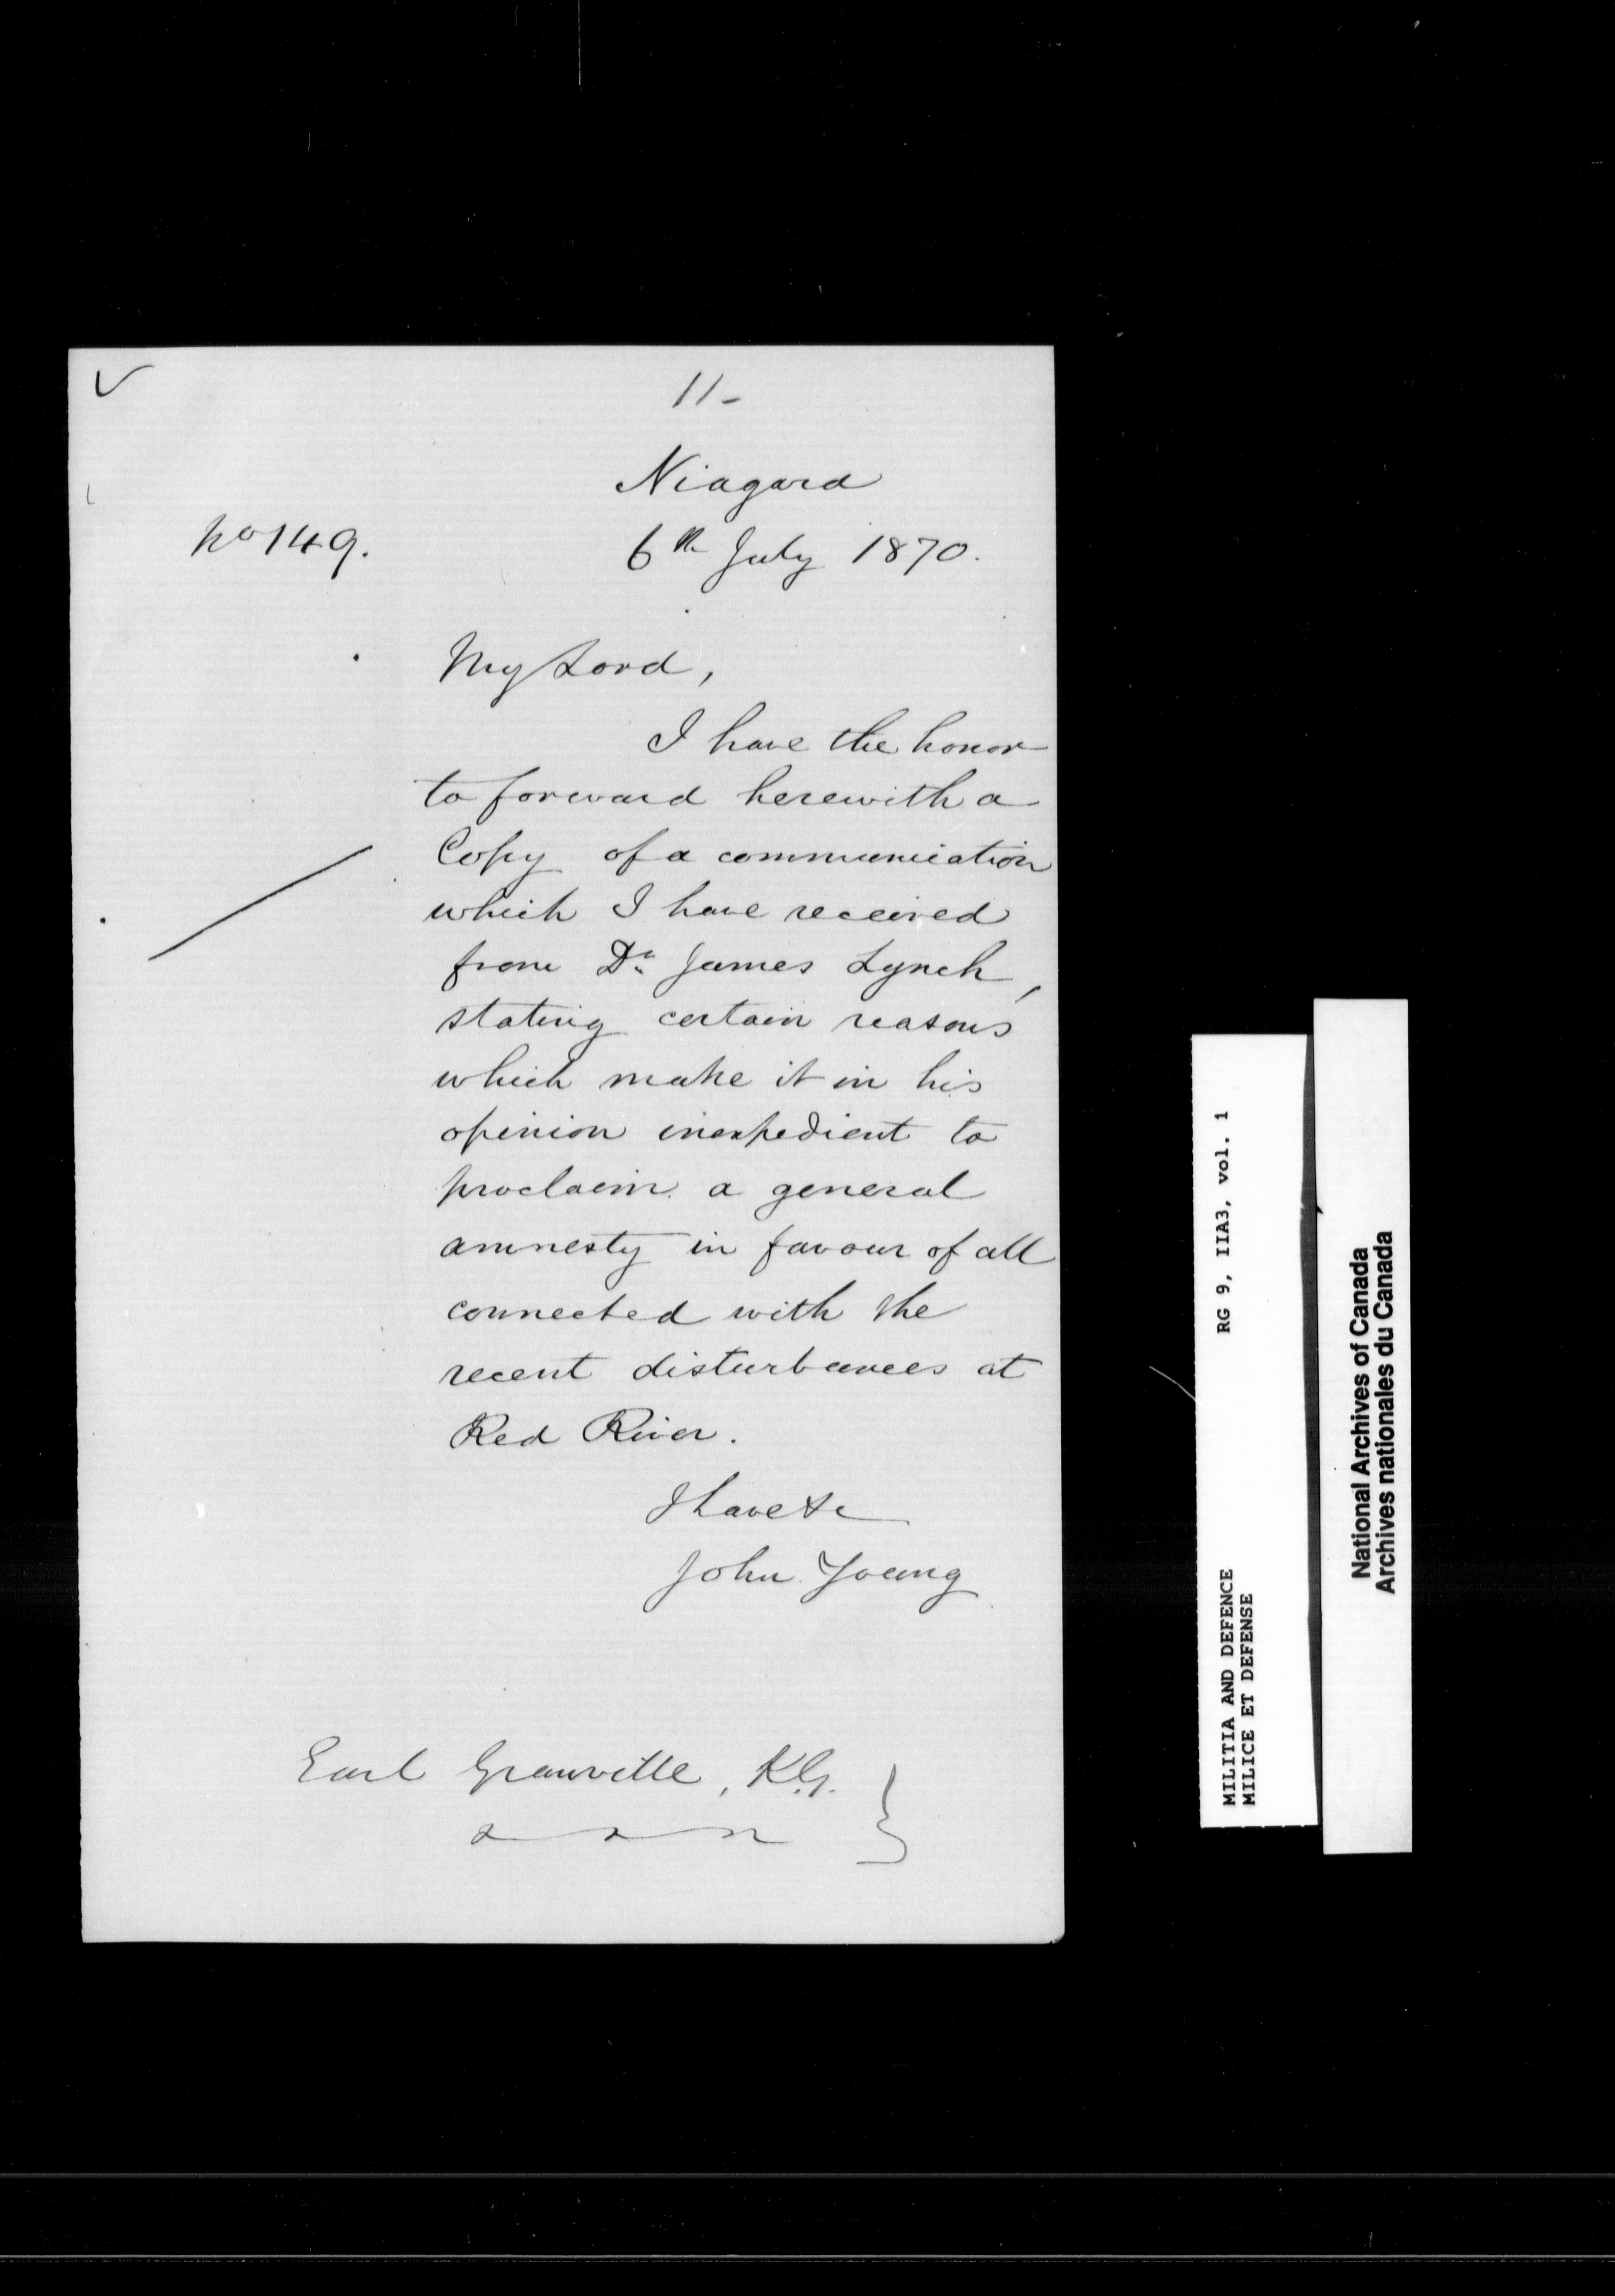 11-
Niagara
No 149.
6th July 1870.
My Lord,
I have the honor
to forward herewith a
Copy of a communication
which I have received
from Dr. James Lynch,
stating certain reasons
which make it in his
opinion inexpedient to
proclaim a general
amnesty in favour of all
connected with the
recent disturbances at
Red River.
I have &c
John Young
Earl Granville, K.G.
MILITIA AND DEFENCE RG 9, IIA3, vol. 1
MILICE ET DEFENSE
National Archives of Canada
Archives nationales du Canada